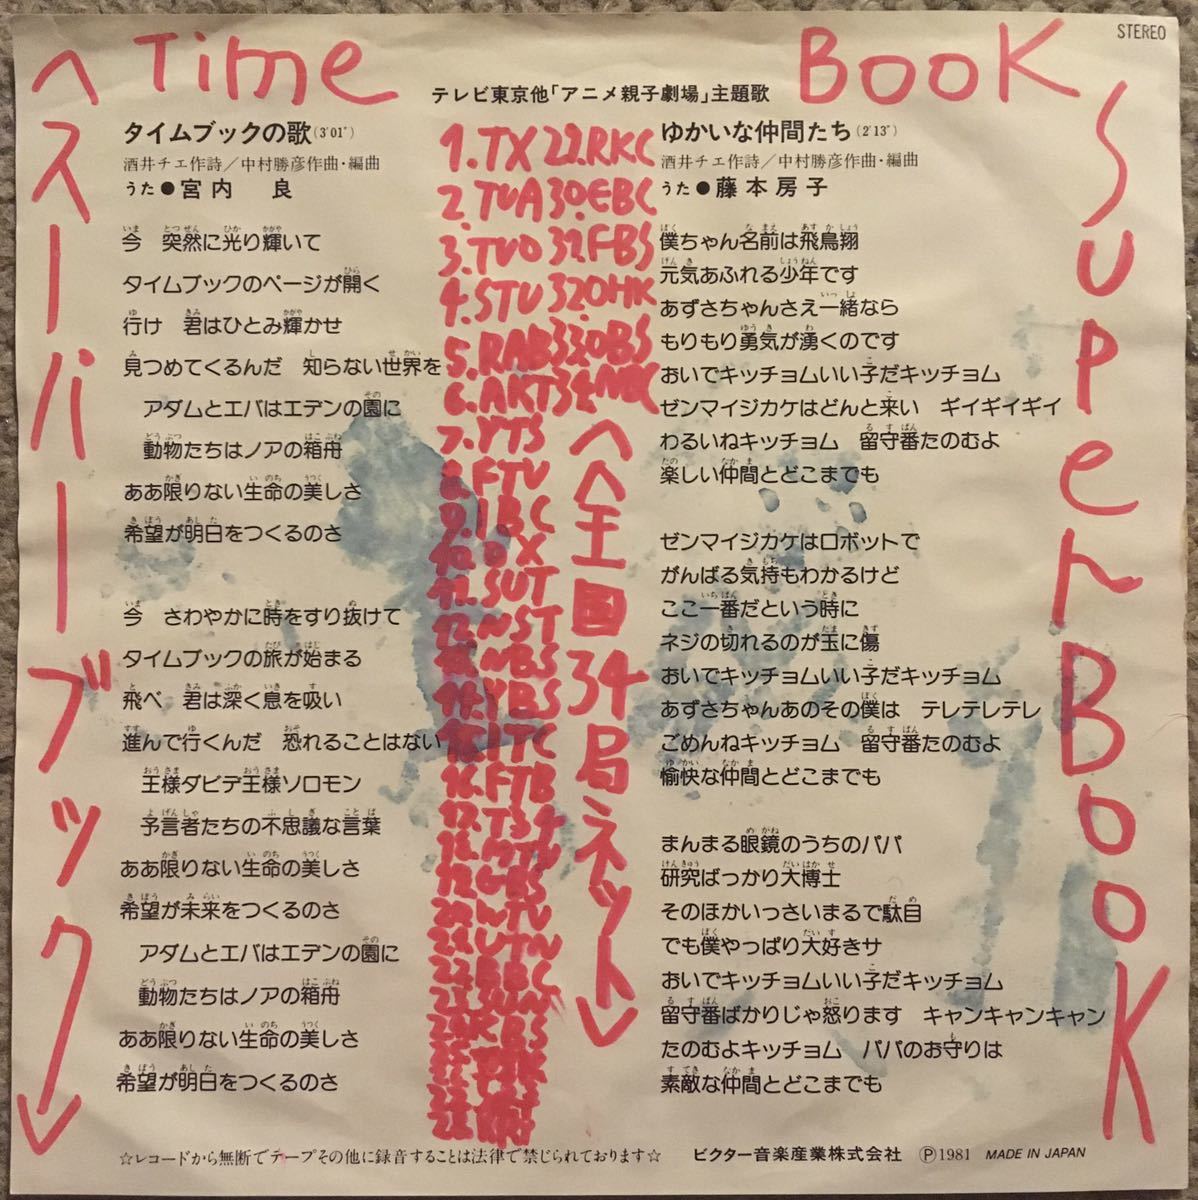 Time Book
STEREO
テレビ東京他「アニメ親子劇場」主題歌
へスーパーブック
SuperBook
タイムブックの歌(3'01")
酒井チエ作詩/中村勝彦作曲・編曲
うた●宮内 良
今 突然に光り輝いて
タイムブックのページが開く
行け 君はひとみ輝かせ
見つめてくるんだ 知らない世界を
アダムとエバはエデンの園に
動物たちはノアの箱舟
ああ限りない生命の美しさ
希望が明日をつくるのさ
今 さわやかに時をすり抜けて
タイムブックの旅が始まる
飛べ 君は深く息を吸い
進んで行くんだ 恐れることはない
王様ダビデ王様ソロモン
予言者たちの不思議な言葉
ああ限りない生命の美しさ
希望が未来をつくるのさ
アダムとエバはエデンの園に
動物たちはノアの箱舟
ああ限りない生命の美しさ
希望が明日をつくるのさ
1.TX
2.TUA
3.TVO
4.STU
5.RAB
6.AKT
7.YTS
8.FTV
9.IBC
10.OX
11.SUT
12.NST
13.NBS
14.YBS
15.ITC
16.FTB
17.T34
18.MTN
19.GBS
20.WTV
21.UTN
22.BBC
23.SUN
24.KBS
29.RKC
30.EBC
31.FBS
32.OHK
33.OBS
へ全国34局ネット
ゆかいな仲間たち(2'13")
酒井チエ作詩/中村勝彦作曲・編曲
うた●藤本房子
僕ちゃん名前は飛鳥翔
元気あふれる少年です
あずさちゃんさえ一緒なら
もりもり勇気が湧くのです
おいでキッチョムいい子だキッチョム
ゼンマイジカケはどんと来い ギイギイギイ
わるいねキッチョム 留守番たのむよ
楽しい仲間とどこまでも
ゼンマイジカケはロボットで
がんばる気持もわかるけど
ここ一番だという時に
ネジの切れるのが玉に傷
おいでキッチョムいい子だキッチョム
あずさちゃんあのその僕は テレテレテレ
ごめんねキッチョム 留守番たのむよ
愉快な仲間とどこまでも
まんまる眼鏡のうちのパパ
研究ばっかり大博士
そのほかいっさいまるで駄目
でも僕やっぱり大好きサ
おいでキッチョムいい子だキッチョム
留守番ばかりじゃ怒ります キャンキャンキャン
たのむよキッチョム パパのお守りは
素敵な仲間とどこまでも
☆レコードから無断でテープその他に録音することは法律で禁じられております☆
ビクター音楽産業株式会社 Ⓟ1981 MADE IN JAPAN